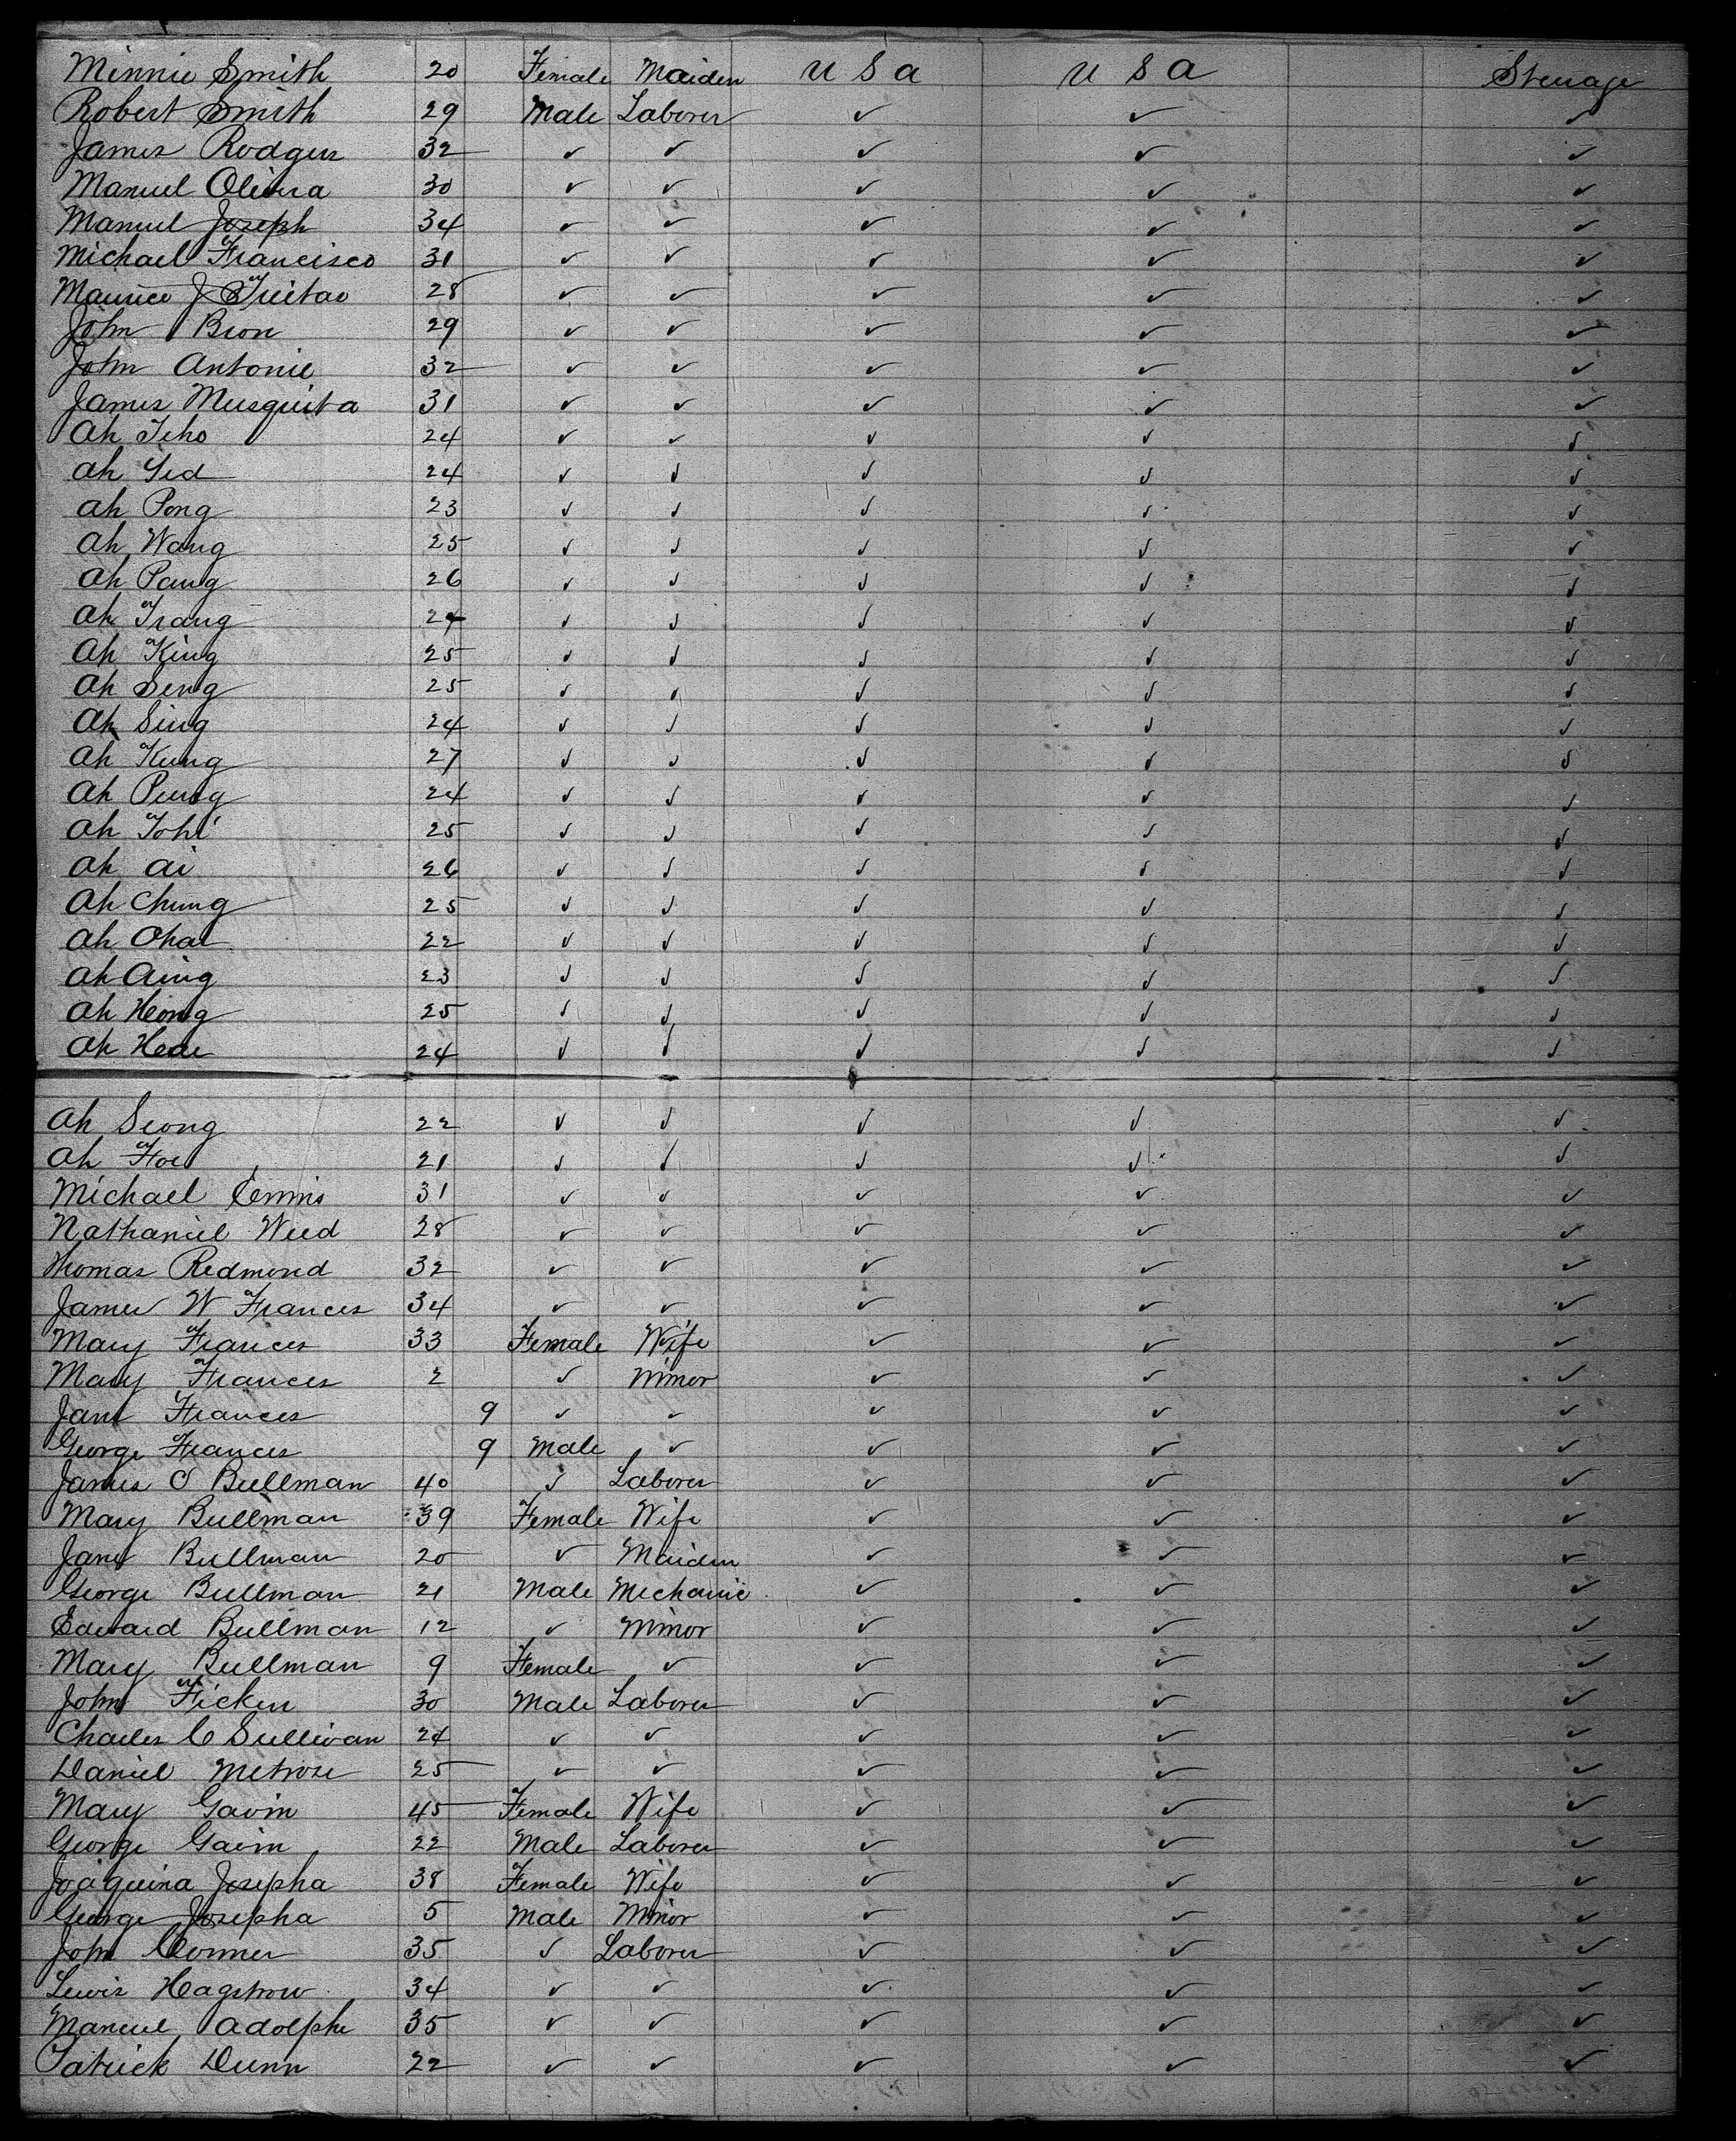 Minnie Smith 20 Female Maiden U S A U S A Steerage
Robert Smith 29 Male Laborer ✓ ✓ ✓
James Rodgers 32 ✓ ✓ ✓ ✓ ✓
Manuel Olivera 30 ✓ ✓ ✓ ✓ ✓
Manuel Joseph 34 ✓ ✓ ✓ ✓ ✓
Michael Francisco 31 ✓ ✓ ✓ ✓ ✓
Maurice J Freitao 28 ✓ ✓ ✓ ✓ ✓
John Bron 29 ✓ ✓ ✓ ✓ ✓
John Antonie 32 ✓ ✓ ✓ ✓ ✓
James Musquita 31 ✓ ✓ ✓ ✓ ✓
Ah Tcho 24 ✓ ✓ ✓ ✓ ✓
Ah Yed 24 ✓ ✓ ✓ ✓ ✓
Ah Pong 23 ✓ ✓ ✓ ✓ ✓
Ah Wang 25 ✓ ✓ ✓ ✓ ✓
Ah Pang 26 ✓ ✓ ✓ ✓ ✓
Ah Trang 24 ✓ ✓ ✓ ✓ ✓
Ah King 25 ✓ ✓ ✓ ✓ ✓
Ah Seng 25 ✓ ✓ ✓ ✓ ✓
Ah Sing 24 ✓ ✓ ✓ ✓ ✓
Ah Kung 27 ✓ ✓ ✓ ✓ ✓
Ah Pung 24 ✓ ✓ ✓ ✓ ✓
Ah Tohi 25 ✓ ✓ ✓ ✓ ✓
Ah Ai 26 ✓ ✓ ✓ ✓ ✓
Ah Chung 25 ✓ ✓ ✓ ✓ ✓
Ah 22 ✓ ✓ ✓ ✓ ✓
Ah Aing 23 ✓ ✓ ✓ ✓ ✓
Ah Heong 25 ✓ ✓ ✓ ✓ ✓
Ah 24 ✓ ✓ ✓ ✓ ✓
Ah Seong 22 ✓ ✓ ✓ ✓ ✓
Ah Foe 21 ✓ ✓ ✓ ✓ ✓
Michael Ennis 31 ✓ ✓ ✓ ✓ ✓
Nathaniel Weed 28 ✓ ✓ ✓ ✓ ✓
Thomas Redmond 32 ✓ ✓ ✓ ✓ ✓
James W Frances 34 ✓ ✓ ✓ ✓ ✓
Mary Frances 33 Female Wife ✓ ✓ ✓
Mary Frances 2 ✓ Minor ✓ ✓ ✓
Jane Frances 9 ✓ ✓ ✓ ✓ ✓
George Frances 9 Male ✓ ✓ ✓ ✓
James O Bullman 40 ✓ Laborer ✓ ✓ ✓
Mary Bullman 39 Female Wife ✓ ✓ ✓
Jane Bullman 20 ✓ Maiden ✓ ✓ ✓
George Bullman 21 Male Mechanic ✓ ✓ ✓
Edward Bullman 12 ✓ Minor ✓ ✓ ✓
Mary Bullman 9 Female ✓ ✓ ✓ ✓
John Ficken 30 Male Laborer ✓ ✓ ✓
Charles C Sullivan 24 ✓ ✓ ✓ ✓ ✓
Daniel Metrose 25 ✓ ✓ ✓ ✓ ✓
Mary Gavin 45 Female Wife ✓ ✓ ✓
George Gavin 22 Male Laborer ✓ ✓ ✓
Joaquina Josepha 38 Female Wife ✓ ✓ ✓
George Josepha 5 Male Minor ✓ ✓ ✓
John Conner 35 ✓ Laborer ✓ ✓ ✓
Lewis Hagstrow 34 ✓ ✓ ✓ ✓ ✓
Manuel Adolphe 35 ✓ ✓ ✓ ✓ ✓
Patrick Dunn 22 ✓ ✓ ✓ ✓ ✓